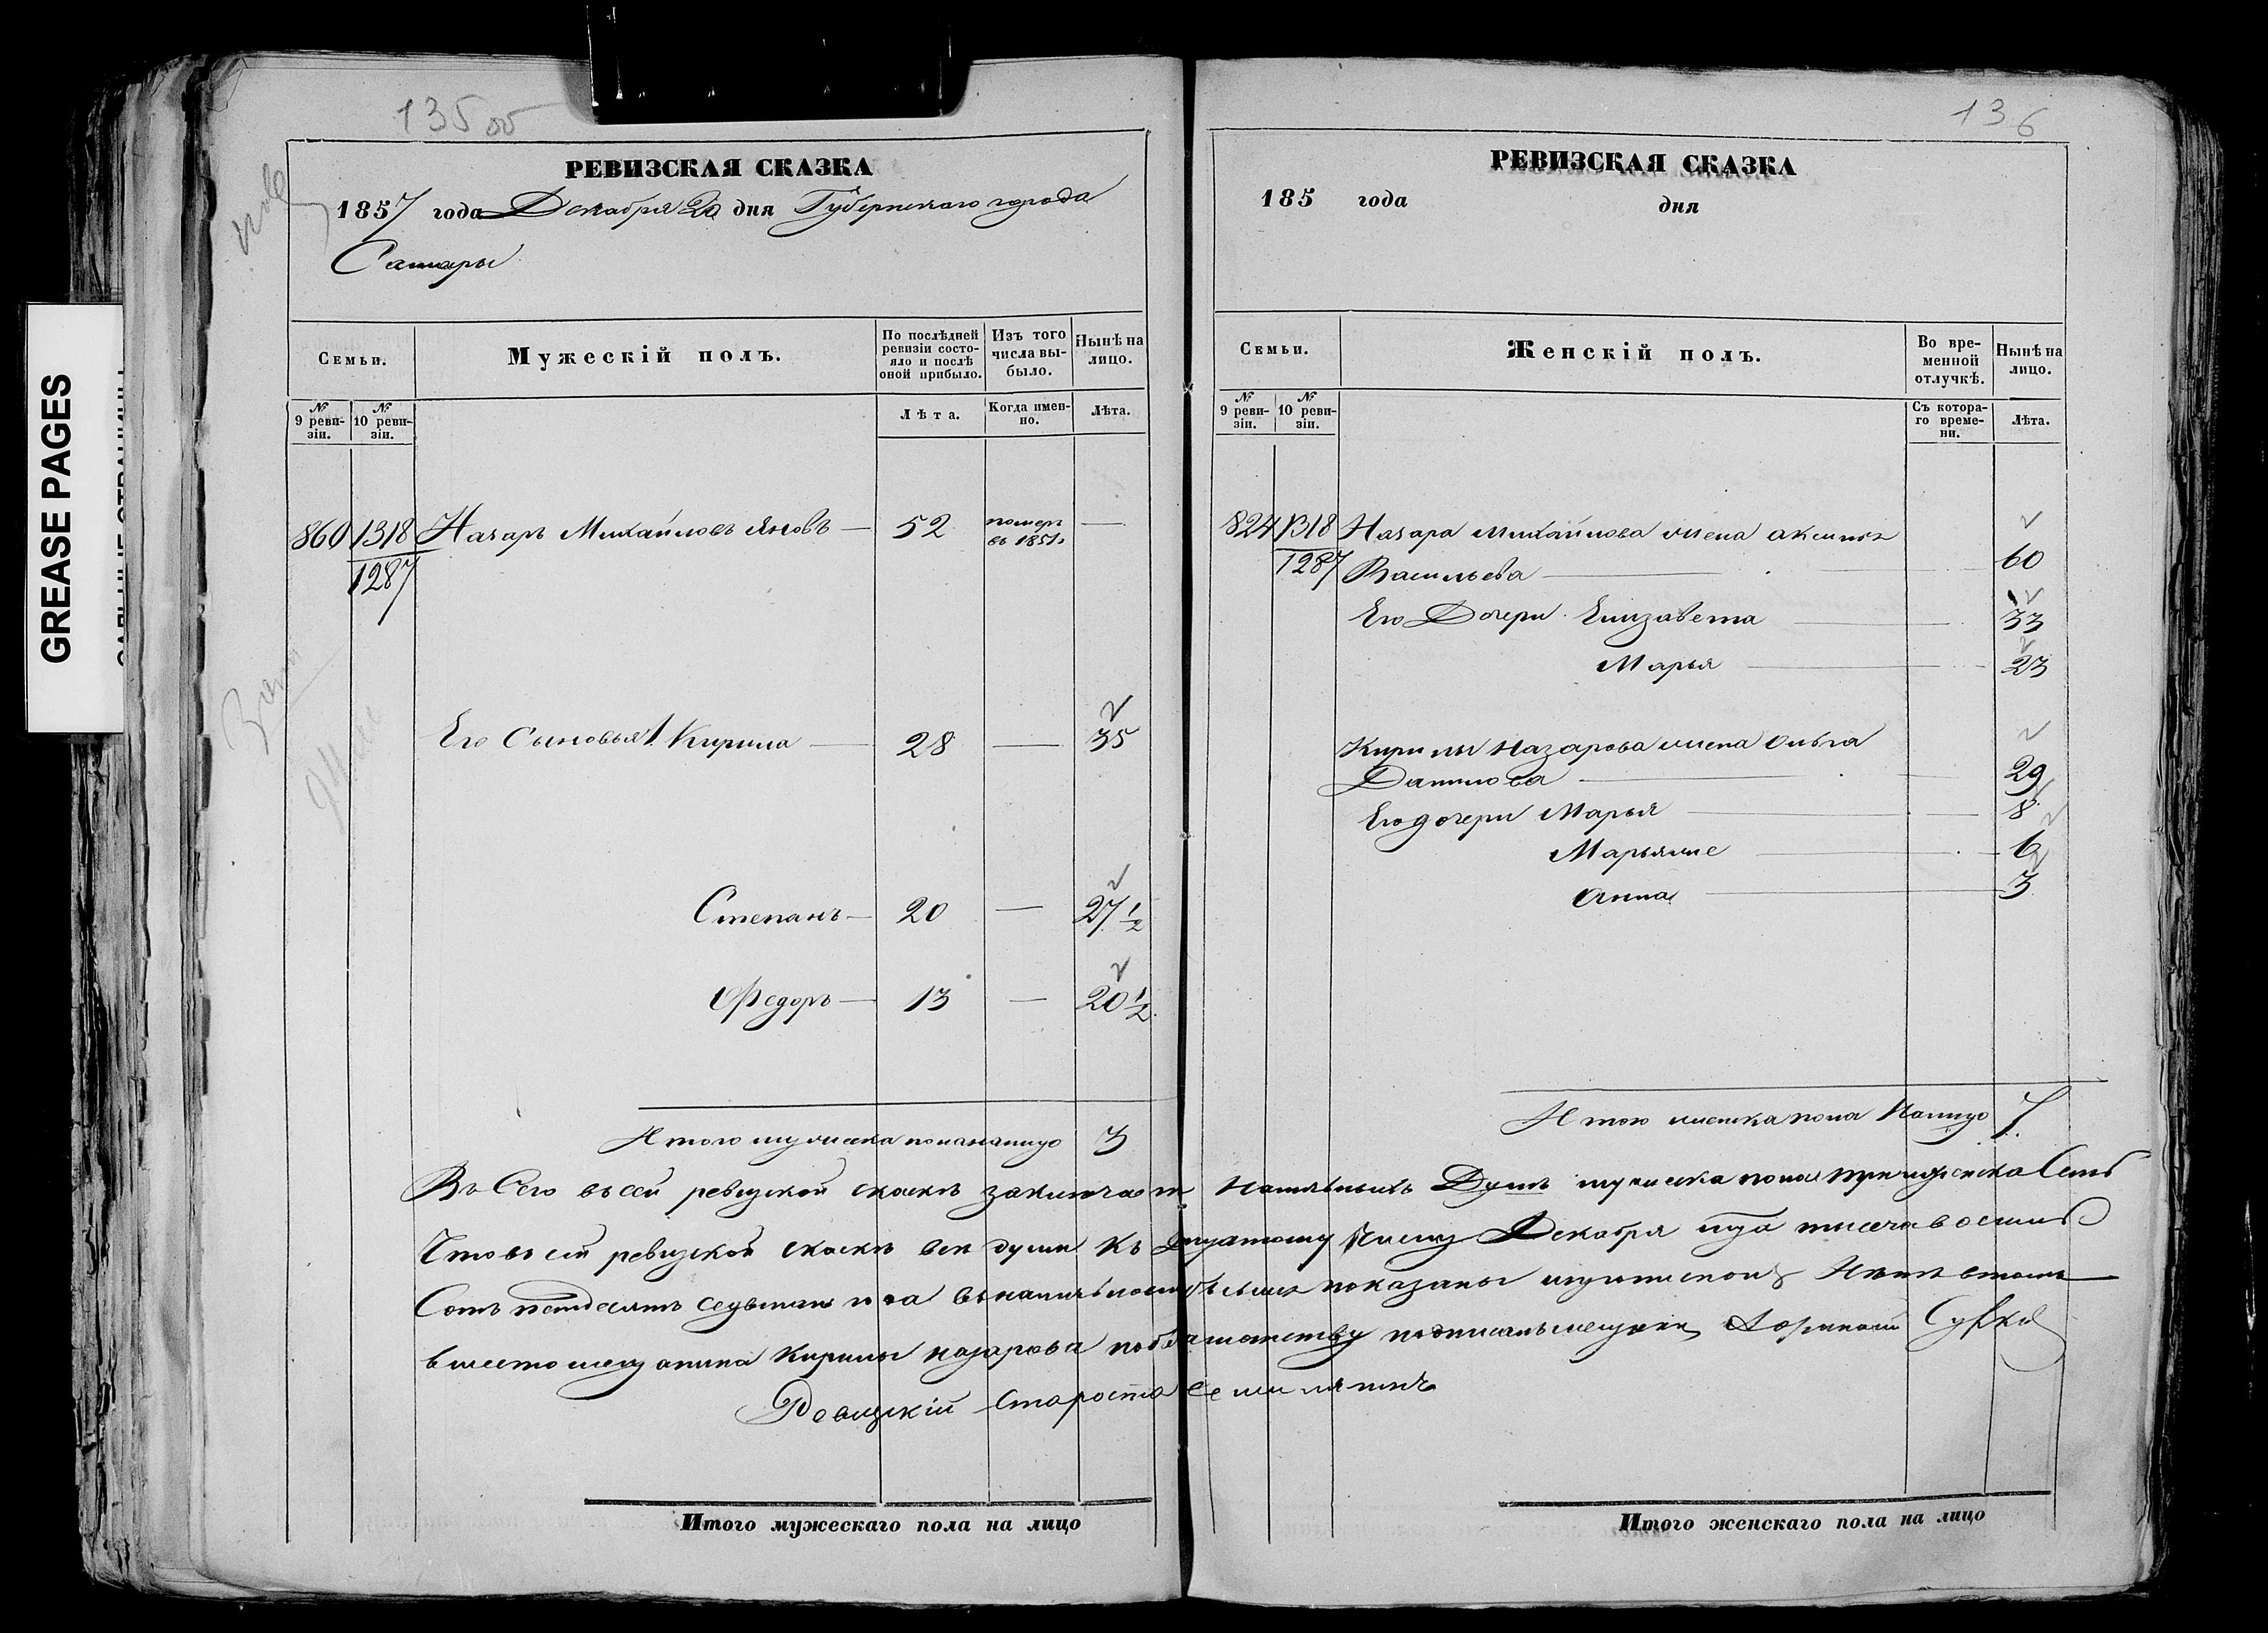 135 об
РЕВИЗСКАЯ СКАЗКА
1857 года Декабря 20 дня Губернскаго города
Самары
GREASE PAGES
Семьи.
Мужескiй полъ.
По послѣдней ревизiи состояло и послѣ оной прибыло.
Изъ того числа выбыло.
Нынѣ на лицо.
№ 9 ревизiи.
№ 10 ревизiи.
Лѣта.
Когда именно.
Лѣта.
860 1318 Назаръ Михайловъ Яновъ — 52 померъ въ 1851г —
1287
Его Сыновья 1. Кирила — 28 — 35
Степанъ — 20 — 27 1/2
Федоръ — 13 — 20 1/2
Итого мужеска пола налицо 3
136
РЕВИЗСКАЯ СКАЗКА
185 года дня
Семьи.
Женскiй полъ.
Во временной отлучкѣ.
Нынѣ на лицо.
№ 9 ревизiи.
№ 10 ревизiи.
Съ котораго времени.
Лѣта.
824 1318 Назара Михайлова жена Аксинья
1287 Васильева — 60
Его Дочери Елизавета — 33
Марья — 23
Кирилы Назарова жена Ольга
Данилова — 29
Его дочери Марья — 8
Марья — 6
Анна — 3
Итого женска пола Налицо 7
Всего въ сей ревизской сказкѣ заключает наличныхъ Душъ мужеска пола три женска Семь
Что въ сей ревизской сказкѣ все души къ Декабря тысяча восемь
Сотъ пятдесятъ седьмаго года въ наличности показаны
вместо мещанина Кирилы Назарова подписалъ мещанин
Ревизскiй Староста
Итого мужескаго пола на лицо
Итого женскаго пола на лицо